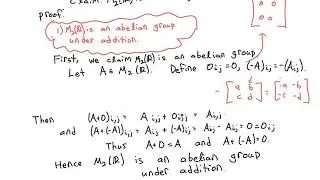 proof.
1) M₂(ℝ) is an abelian group
under addition.
First, we claim M₂(ℝ) is an abelian group
Let A ∈ M₂(ℝ). Define 0ij = 0, (-A)ij = -(Aij).
[0 0
0 0]
-[a b
c d] = [-a -b
-c -d]
Then (A+0)i,j = Ai,j + 0i,j = Ai,j
and (A+(-A))i,j = Ai,j + (-A)i,j = Aij - Aij = 0 = 0ij
Thus A+0 = A and A+(-A) = 0.
Hence M₂(ℝ) is an abelian group
under addition.